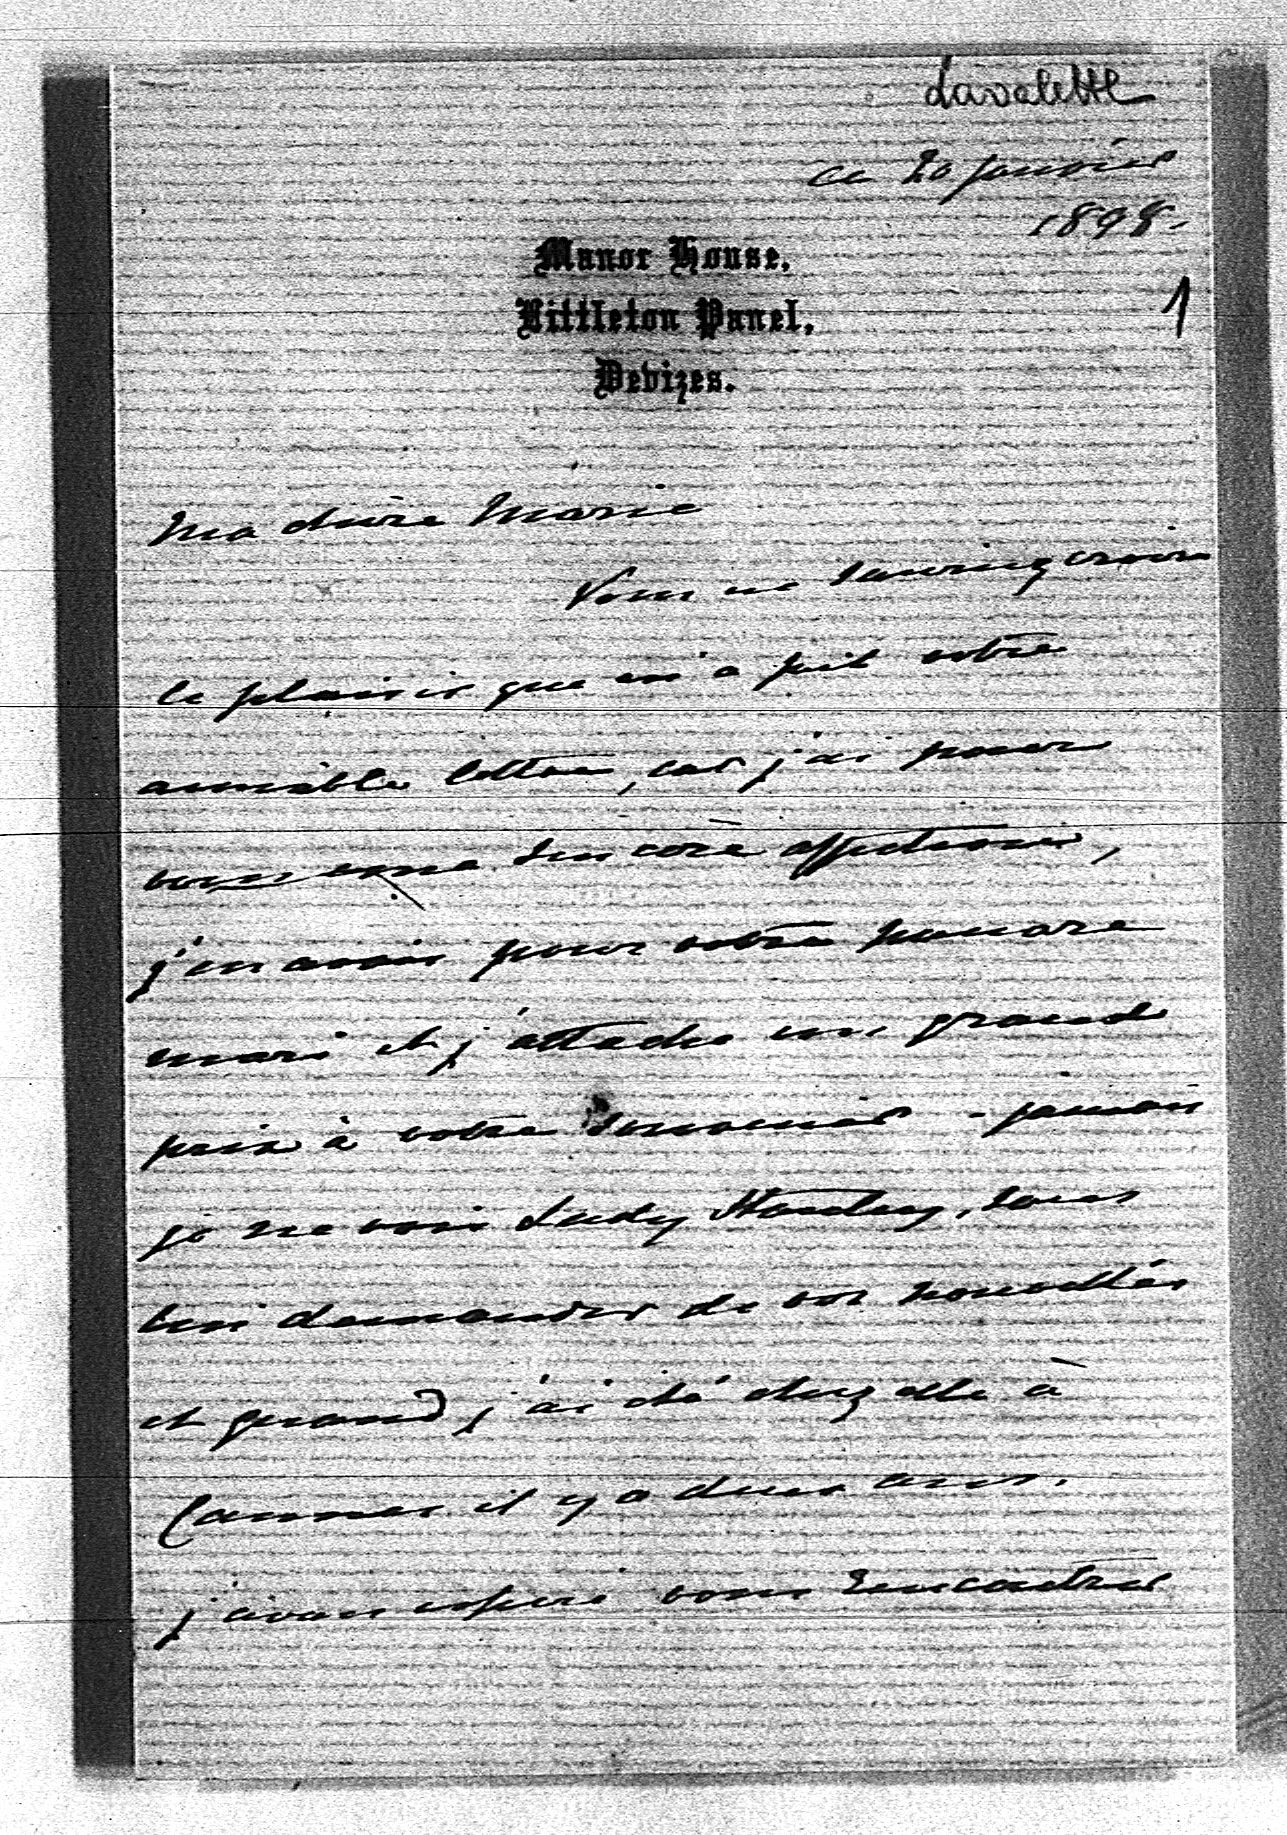 Lavalette
ce 20 janvier
1898-
Manor House,
Littleton Panel,
Devizes.
1
Ma chère Marie
Vous ne sauriez croire
le plaisir que m'a fait votre
aimable lettre, car j'ai pour
vous une sincère affection,
j'en avais pour votre pauvre
mari et j'attache un grand
prix à votre souvenir - jamais
je ne vois Lady Stanley, sans
lui demander de vos nouvelles
et quand j'ai été chez elle à
Cannes il y a deux ans.
j'avais espéré vous rencontrer